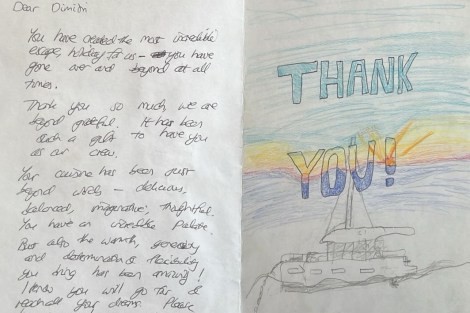 Dear Dimitri
You have created the most incredible
escape, holiday for us - you have
gone over and beyond at all
times.
Thank you so much we are
beyond grateful. It has been
such a gift to have you
as our crew.
Your cuisine has been just
beyond words - delicious,
balanced, imaginative, thoughtful.
You have an incredible palate.
But also the warmth, generosity
and determination & flexibility
you bring has been amazing!
I know you will go far &
reach all your dreams. Please
THANK
YOU!